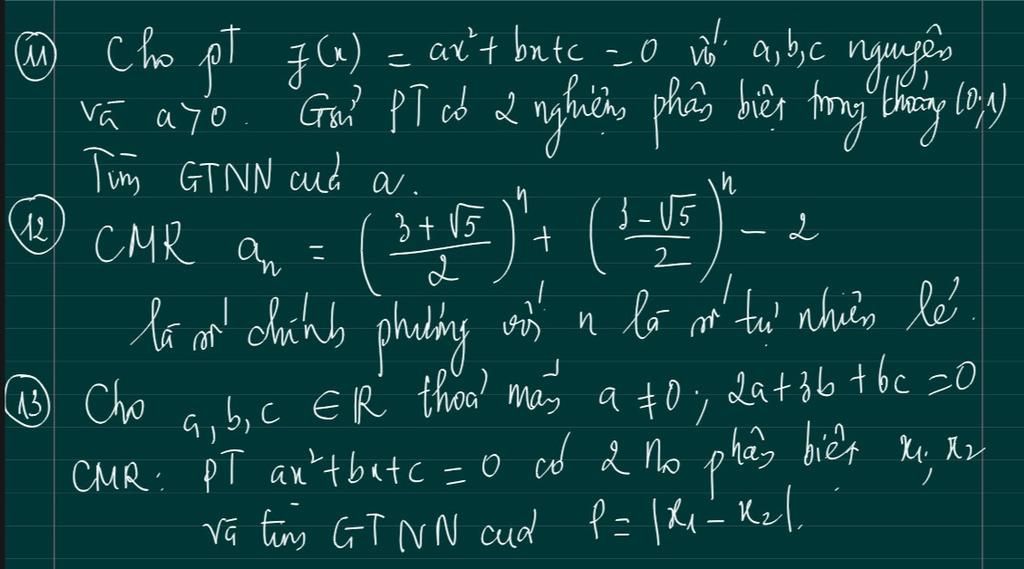 (11) Cho pT f(x) = ax² + bx + c = 0 với a, b, c nguyên
và a > 0. Gsử PT có 2 nghiệm phân biệt trong khoảng (0;1)
Tìm GTNN của a.
(12) CMR aₙ = ((3 + √5)/2)ⁿ + ((3 - √5)/2)ⁿ - 2
là số chính phương với n là số tự nhiên lẻ.
(13) Cho a, b, c ∈ R thoả mãn a ≠ 0; 2a + 3b + 6c = 0
CMR: PT ax² + bx + c = 0 có 2 No phân biệt x₁; x₂
và tìm GTNN của P = |x₁ - x₂|.